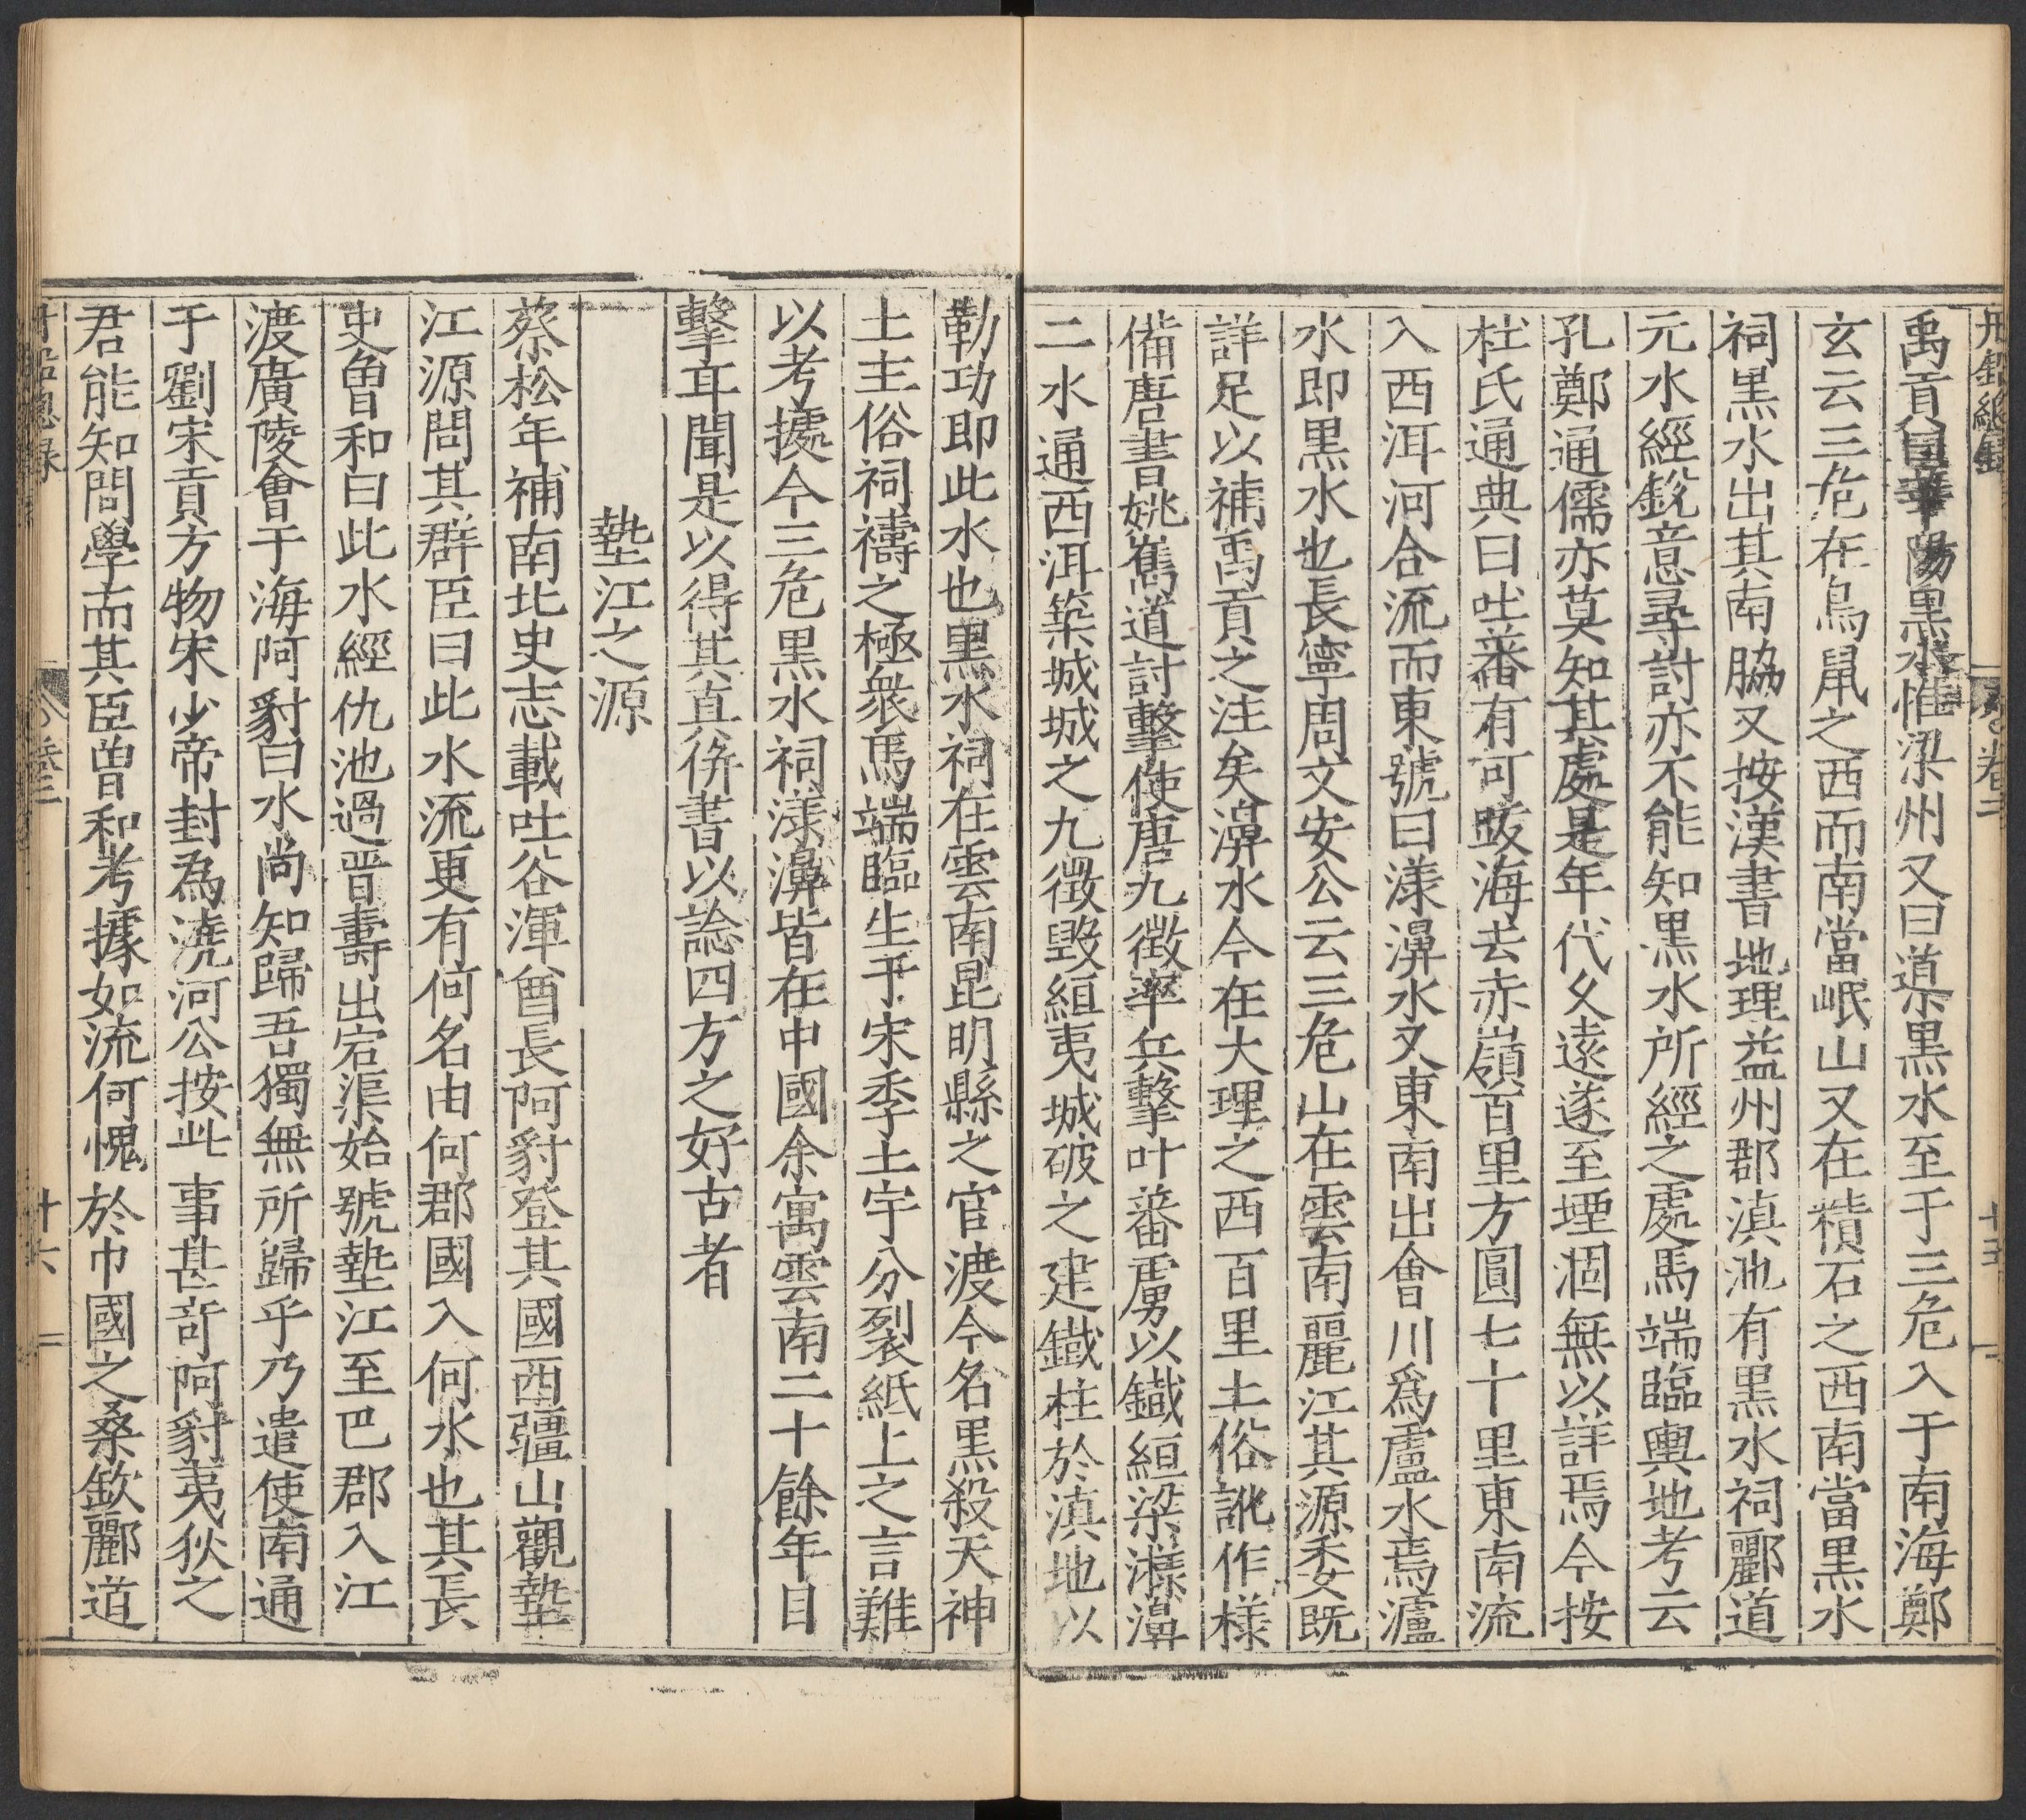 丹鉛總錄 卷二 十五
禹貢曰華陽黑水惟梁州又曰道黑水至于三危入于南海鄭
玄云三危在鳥鼠之西而南當岷山又在積石之西南當黑水
祠黑水出其南脇又按漢書地理益州郡滇池有黑水祠酈道
元水經銳意尋討亦不能知黑水所經之處馬端臨輿地考云
孔鄭通儒亦莫知其處是年代久遠遂至堙涸無以詳焉今按
杜氏通典曰吐蕃有可跋海去赤嶺百里方圓七十里東南流
入西洱河合流而東號曰漾濞水又東南出會川爲盧水焉瀘
水即黑水也長寧周文安公云三危山在雲南麗江其源委既
詳足以補禹貢之注矣濞水今在大理之西百里土俗訛作樣
備唐書姚嶲道討擊使唐九徵率兵擊叶蕃虜以鐵絙梁漾濞
二水通西洱築城城之九徵毀絙夷城破之建鐵柱於滇地以
勒功即此水也黑水祠在雲南昆明縣之官渡今名黑殺天神
土主俗祠禱之極衆馬端臨生于宋季土宇分裂紙上之言難
以考據今三危黑水祠漾濞皆在中國余寓雲南二十餘年目
擊耳聞是以得其真併書以諗四方之好古者
墊江之源
蔡松年補南北史志載吐谷渾酋長阿豺登其國西疆山觀墊
江源問其群臣曰此水流更有何名由何郡國入何水也其長
史曾和曰此水經仇池過晋壽出宕渠始號墊江至巴郡入江
渡廣陵會于海阿豺曰水尚知歸吾獨無所歸乎乃遣使南通
于劉宋貢方物宋少帝封為澆河公按此事甚奇阿豺夷狄之
君能知問學而其臣曾和考據如流何愧於巾國之桑欽酈道
丹鉛總錄 卷二 十六